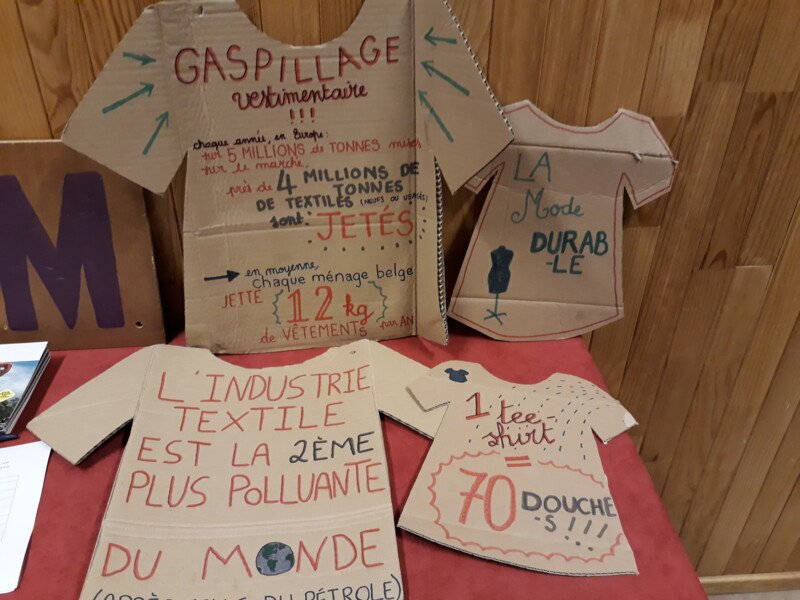 GASPILLAGE
vestimentaire
!!!
chaque année, en Europe:
sur 5 MILLIONS de TONNES mises
sur le marché,
près de 4 MILLIONS DE
TONNES
DE TEXTILES (NEUFS OU USAGÉS)
sont: JETÉS
en moyenne,
chaque ménage belge
JETTE 12 kg
de VÊTEMENTS par AN
LA
Mode
DURAB
-LE
M
L'INDUSTRIE
TEXTILE
EST LA 2ÈME
PLUS POLLUANTE
DU MONDE
(APRÈS CELLE DU PÉTROLE)
1 tee-
shirt
=
70 DOUCHE
-S!!!